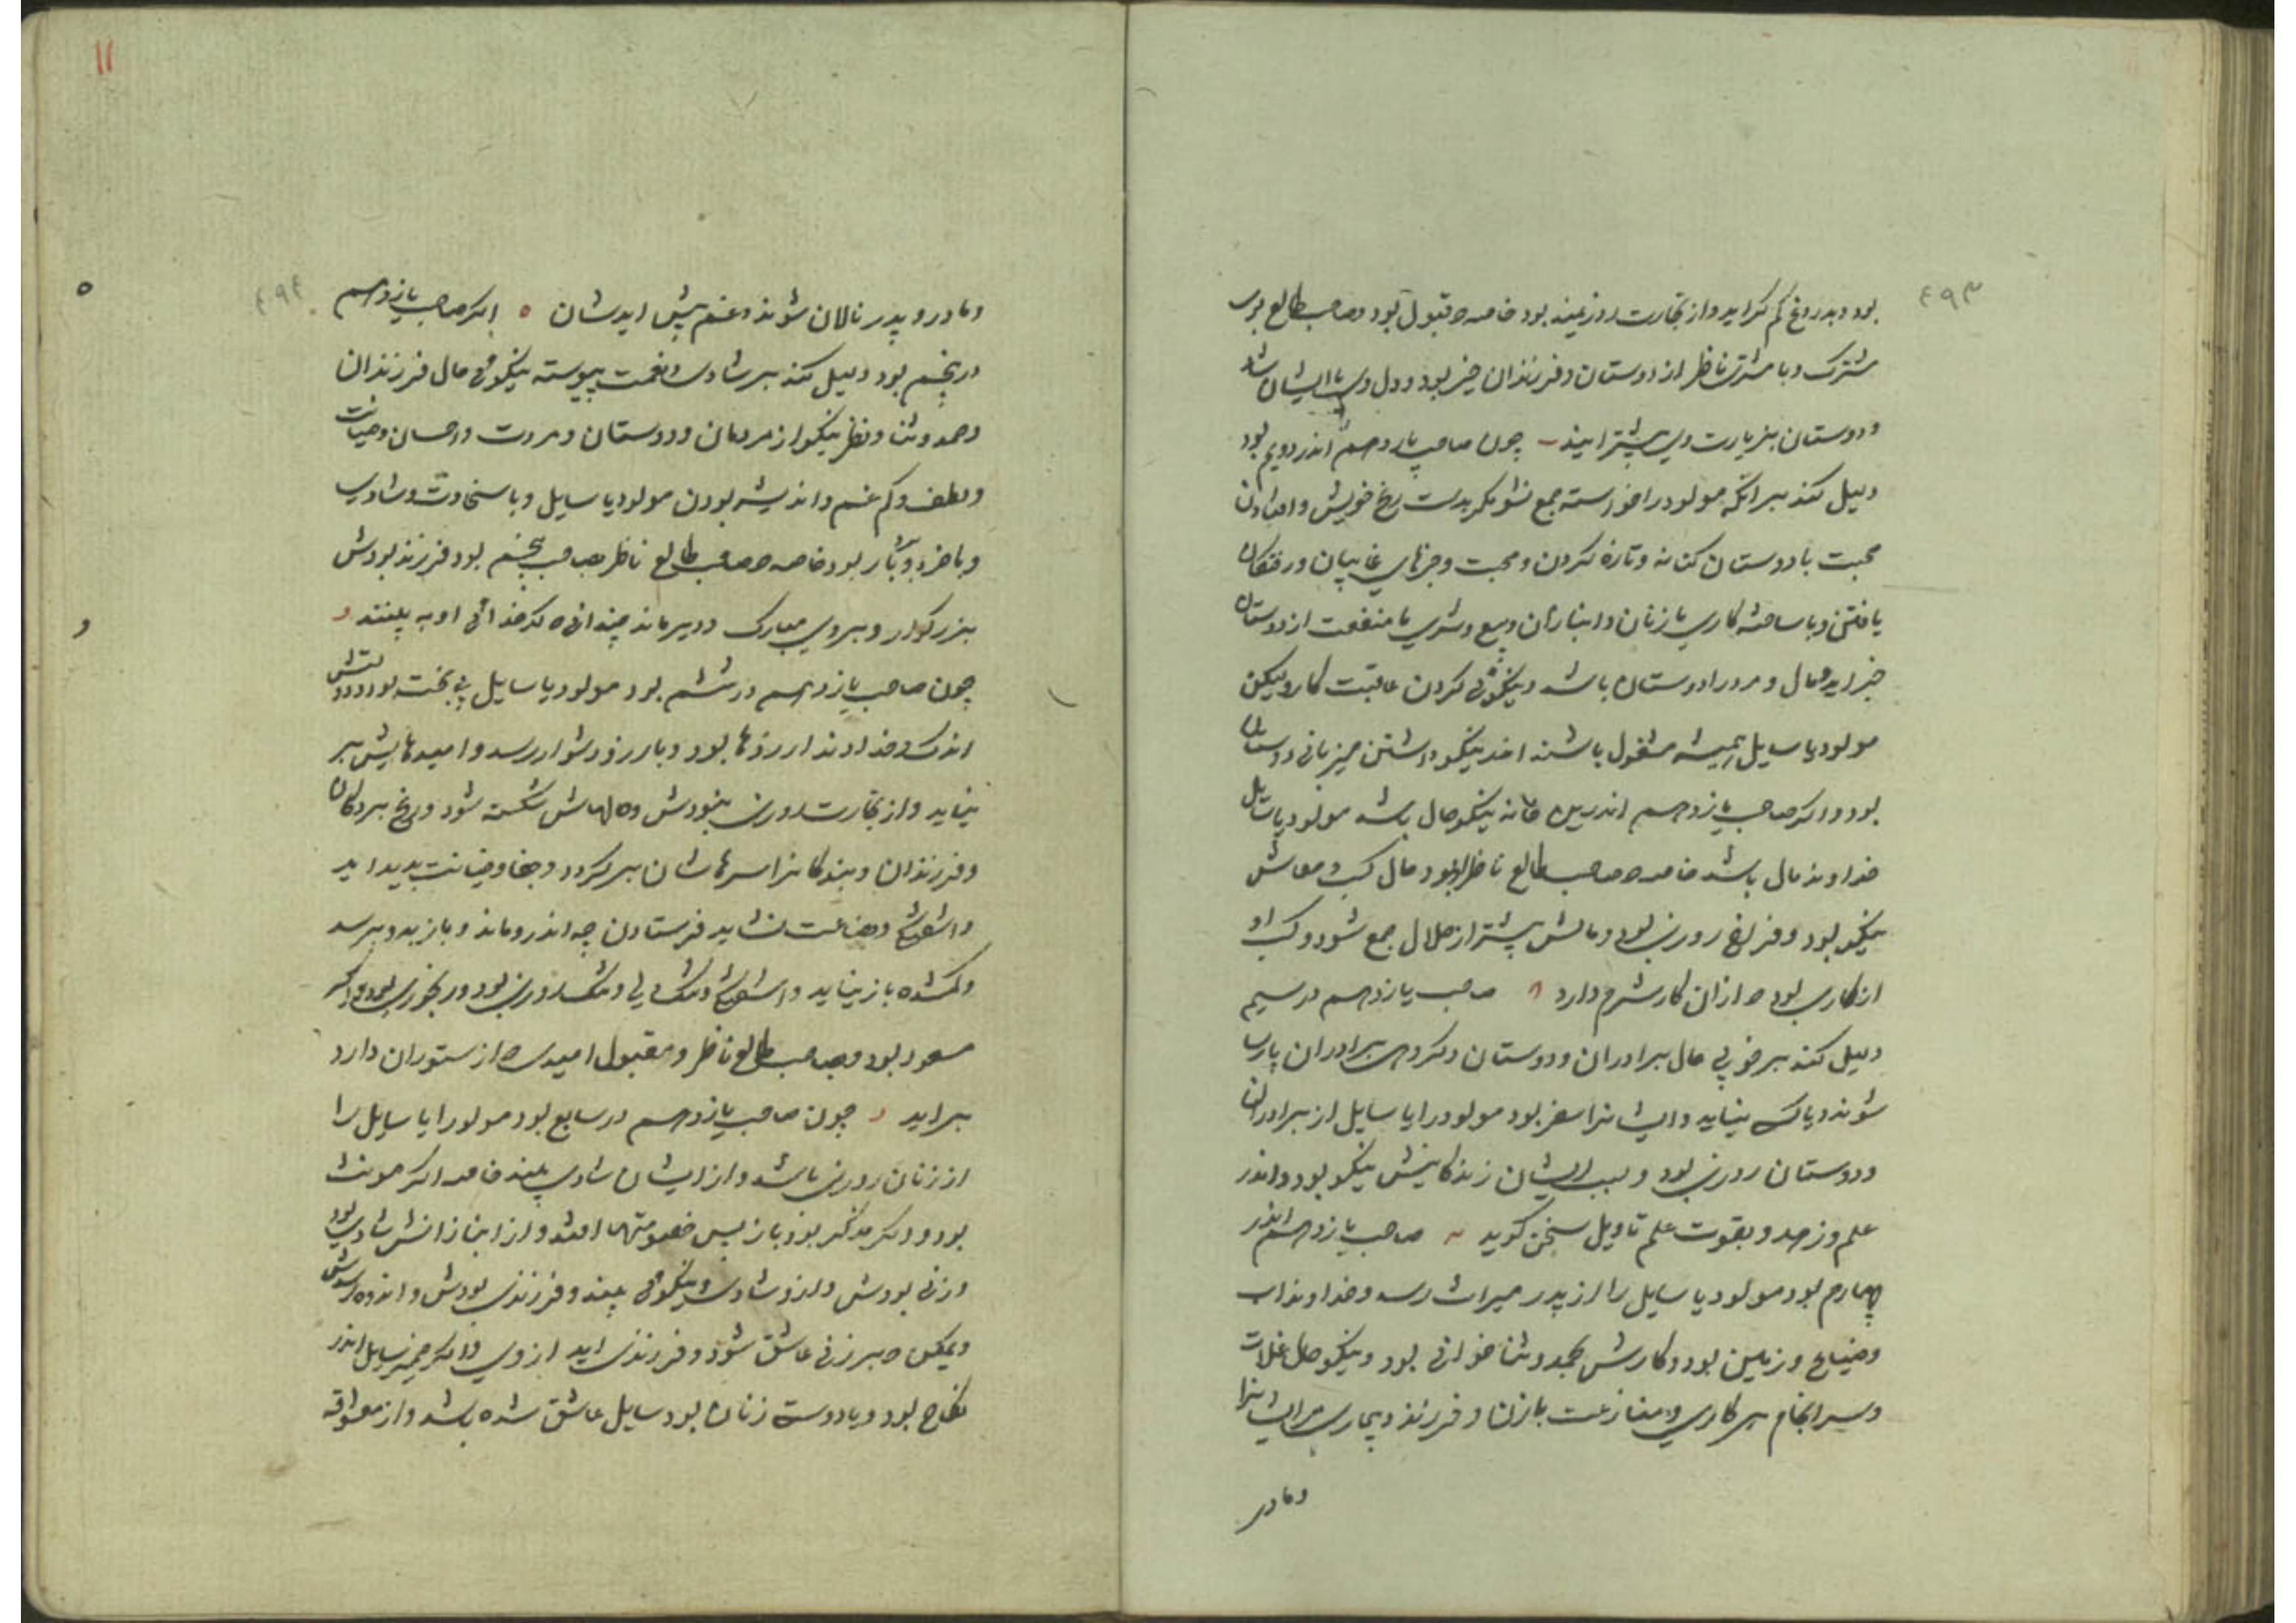 ٤٩٣
بود و بدروغ کم گراید و از تجارت روزیمند بود خاصه که قبول بود و صاحب طالع برج
مشترک و با مشتری ناظر از دوستان و فرزندان خیر بود و دل وی با ایشان شاد
و دوستان بزیارت وی بیشتر آیند چون صاحب یازدهم اندر دویم بود
دلیل کند بر آنکه مولود را خواسته جمع نشو مگر بدست رنج خویش و افتادن
محبت با دوستان کنانه و تازه کردن و محبت و خبرهای غایبان و رفتگان
یافتن و با ساخته کاری با زنان و انبازان و بیع و شری با منفعت از دوستان
خیر آید و مال و مرد را دوستان باشد و نیکوئی کردن عاقبت کار ولیکن
مولود یا سایل همیشه مشغول باشند اندر نیکو داشتن میزبانی دوستان
بود و اگر صاحب یازدهم اندرین خانه نیکو حال باشد مولود یا سایل
خداوند مال باشد خاصه که صاحب طالع ناظر بود مال کسب و معاش
نیکو بود و فراخ روزی بود و مالش بیشتر از حلال جمع شود و کسب او
از کاری بود که از آن کار شرم دارد صاحب یازدهم در سیم
دلیل کند بر خوبی حال برادران و دوستان و گروهی برادران پارسا
شوند و باک نیاید و ایشانرا سفر بود مولود را یا سایل از برادران
و دوستان روزی بود و بسبب ایشان زندگانیش نیکو بود و اندر
علم و زهد و بقوت علم تاویل سخن گوید صاحب یازدهم اندر
چهارم بود مولود یا سایل را از پدر میراث رسد و خداوند آب
و ضیاع و زمین بود و کارش بحمد و ثنا خوانی بود و نیکو حال غلات
و سرانجام هر کاری و منازعت با زن و فرزند و بیماری مر ایشانرا
و مادر
١١
٤٩٤
و مادر و پدر نالان شوند و غم پیش آیدشان اگر صاحب یازدهم
در پنجم بود دلیل کند بر شادی و نعمت پیوسته نیکوئی حال فرزندان
و حمد و ثنا و نظر نیکو از مردمان و دوستان و مروت و احسان و خیانت
و لطف و کم غم و اندیشه بودن مولود یا سایل و با سخاوت و شادی
و با خرد و بکار بود خاصه که صاحب طالع ناظر بصاحب پنجم بود فرزند بودش
بزرگوار و بروی مبارک و دیر ماند چندانی که کدخدائی او به بینند
چون صاحب یازدهم در ششم بود مولود یا سایل بی بخت بود و دوستش
اندک و خداوند آرزوها بود و بآرزو دشوار رسد و امیدهایش بر
نیاید و از تجارت روزی نبودش و دلهاش شکسته شود و رنج بردگان
و فرزندان و بندگانرا سرهاشان برگردد و جفا و خیانت پدید آید
و بضاعت نشاید فرستادن چه اندرو ماند و باز بدو نرسد
و گمشده باز نیاید و تنگ روزی بود و رنجوری بود و اگر
مسعود بود و صاحب طالع ناظر و مقبول امیدی که از ستوران دارد
بر آید چون صاحب یازدهم در سابع بود مولود را یا سایل را
از زنان روزی باشد و از ایشان شادی بیند خاصه اگر مونث
بود و اگر مذکر بود باز پس خصومتها افتد و از انبازانش شادی بود
و زنی بودش و ازو شادی و نیکوئی بیند و فرزندی بودش و اندوه رسدش
و ممکن که بر زنی عاشق شود و فرزندی آید از وی و اگر ضمیر سایل اندر
نکاح بود و یا دوست زنان بود سایل عاشق شده باشد و از معشوقه